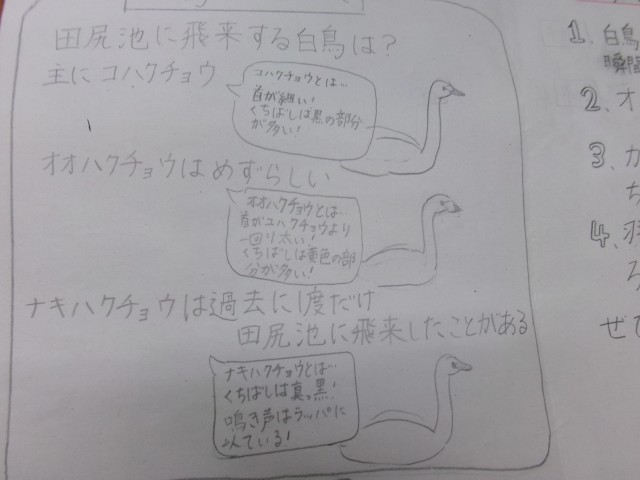 田尻池に飛来する白鳥は?
主に コハクチョウ
コハクチョウとは…
首が細い!
くちばしは黒の部分
が多い!
オオハクチョウはめずらしい
オオハクチョウとは…
首がコハクチョウより
一回り太い!
くちばしは黄色の部
分が多い!
ナキハクチョウは過去に1度だけ
田尻池に飛来したことがある
ナキハクチョウとは…
くちばしは真っ黒!
鳴き声はラッパに
似ている!
1. 白鳥
瞬間
2. オ
3. カ
ち
4. 羽
ろ
ぜて